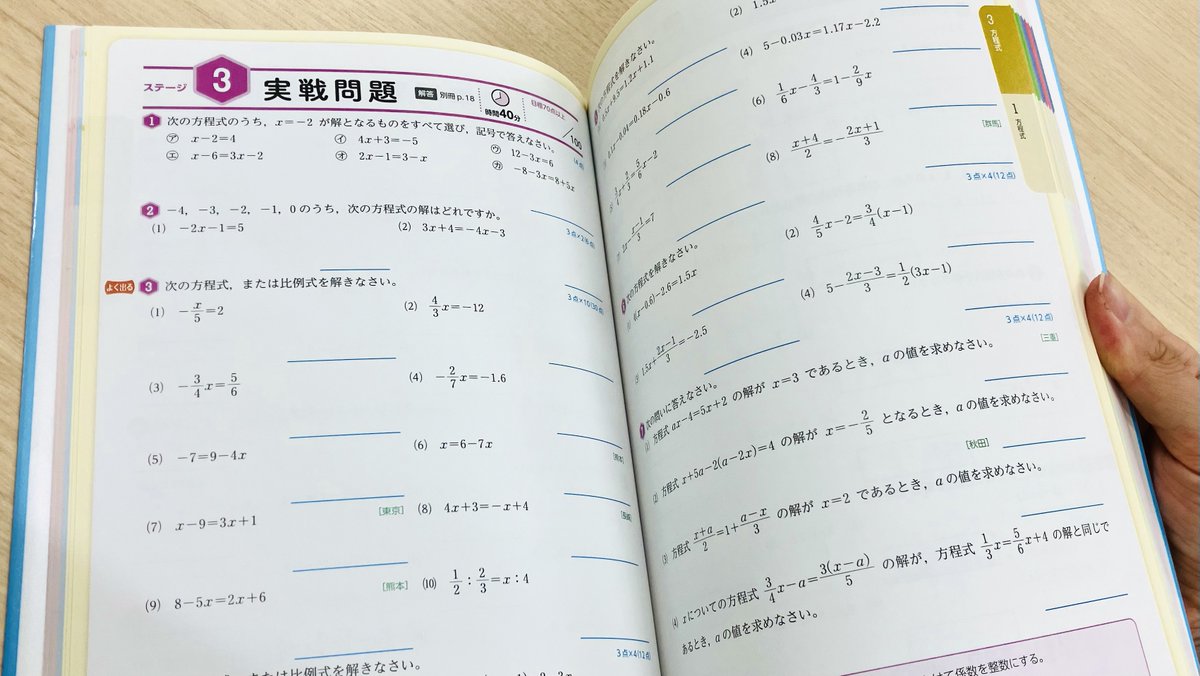 ステージ 3 実戦問題 解答 別冊 p.18 時間40分 目標70点以上 /100
1 次の方程式のうち，x=-2 が解となるものをすべて選び，記号で答えなさい。 (4点)
㋐ x-2=4 ㋑ 4x+3=-5 ㋒ 12-3x=6
㋓ x-6=3x-2 ㋔ 2x-1=3-x ㋕ -8-3x=8+5x
2 -4，-3，-2，-1，0のうち，次の方程式の解はどれですか。
(1) -2x-1=5 (2) 3x+4=-4x-3
よく出る 3 次の方程式，または比例式を解きなさい。
(1) -x/5=2 (2) 4/3x=-12
(3) -3/4x=5/6 (4) -2/7x=-1.6
(5) -7=9-4x (6) x=6-7x
[東京]
(7) x-9=3x+1 (8) 4x+3=-x+4
[熊本]
(9) 8-5x=2x+6 (10) 1/2：2/3=x：4
3点×4(12点)
または比例式を解きなさい。
3 方程式
1 方程式
(2)
方程式を解きなさい。
(4) 5-0.03x=1.17x-2.2
(6) 1/6x-4/3=1-2/9x
[群馬]
(8) (x+4)/2=-(2x+1)/3
3点×4(12点)
次の方程式を解きなさい。
(2) 4/5x-2=3/4(x-1)
(4) 5-(2x-3)/3=1/2(3x-1)
3点×4(12点)
7 次の問いに答えなさい。
[三重]
(1) 方程式 ax-4=5x+2 の解が x=3 であるとき，aの値を求めなさい。
(2) 方程式 x+5a-2(a-2x)=4 の解が x=-2/5 となるとき，aの値を求めなさい。
[秋田]
(3) 方程式 (x+a)/2=1+(a-x)/3 の解が x=2 であるとき，aの値を求めなさい。
(4) xについての方程式 3/4x-a=3(x-a)/5 の解が，方程式 1/3x=5/6x+4 の解と同じで
あるとき，aの値を求めなさい。
けて係数を整数にする。